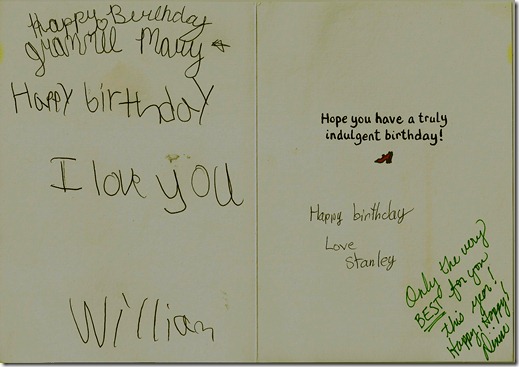 Happy Birthday
grammie Mary
Happy birthday
I love you
William
Hope you have a truly
indulgent birthday!
Happy birthday
Love
Stanley
Only the very
BEST for you
this year!
Happy, Happy!